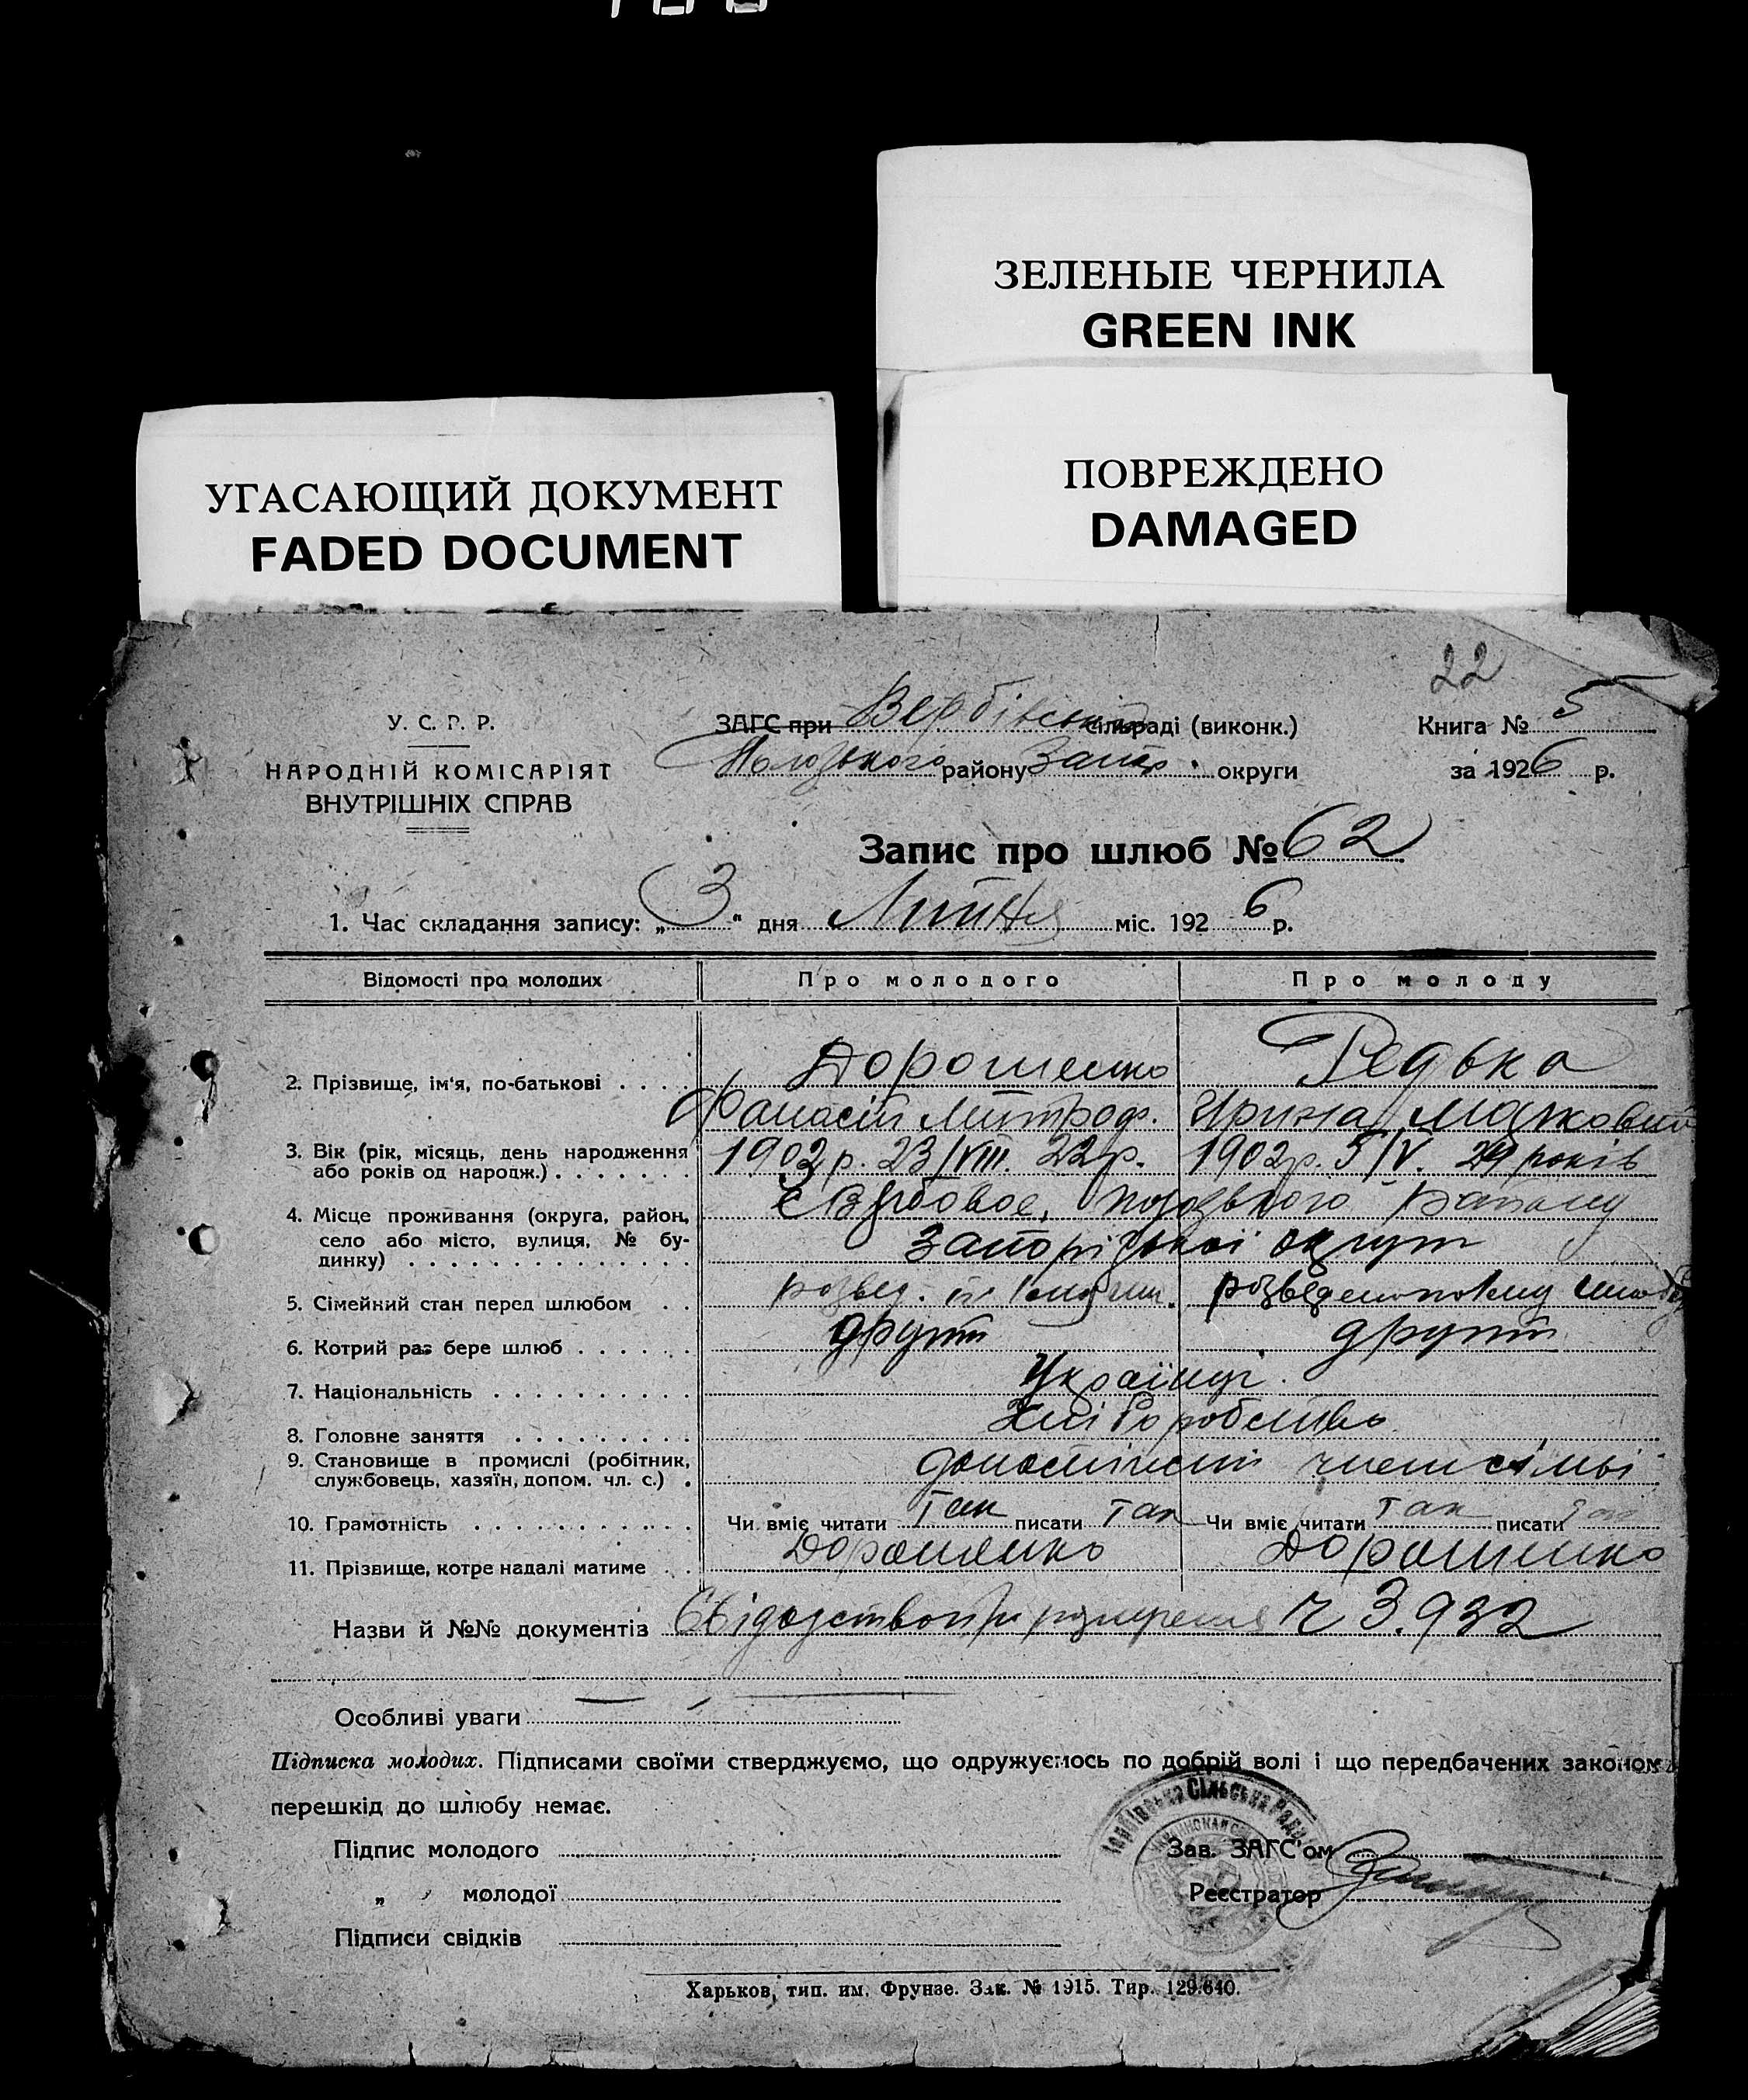 ЗЕЛЕНЫЕ ЧЕРНИЛА
GREEN INK
УГАСАЮЩИЙ ДОКУМЕНТ
FADED DOCUMENT
ПОВРЕЖДЕНО
DAMAGED
22
У. С. Р. Р.
НАРОДНІЙ КОМІСАРІЯТ
ВНУТРІШНІХ СПРАВ
ЗАГС при Вербівській сільраді (виконк.)
району Запор. округи
Книга № 5
за 1926 р.
Запис про шлюб № 62
1. Час складання запису: „3" дня Липня міс. 1926 р.
Відомості про молодих Про молодого Про молоду
2. Прізвище, ім'я, по-батькові . . . . Дорошенко Редька
Фанасій Митроф. Ирина
3. Вік (рік, місяць, день народження або років од народж.) . . . . . . . 1902 р. 23/VIII. 22 р. 1902 р. 5/IV. 24 років
4. Місце проживання (округа, район, село або місто, вулиця, № будинку) . . . . . . . . . . . . . . с Вербовое, района
Запорізької округи
5. Сімейний стан перед шлюбом . . розвед.
6. Котрий раз бере шлюб . . . . . . другий другий
7. Національність . . . . . . . . . . Українці.
8. Головне заняття . . . . . . . . . Хліборобство
9. Становище в промислі (робітник, службовець, хазяїн, допом. чл. с.) . член сімьі
10. Грамотність . . . . . . . . . . . Чи вміє читати Так писати Так Чи вміє читати Так писати Так
11. Прізвище, котре надалі матиме . . Дорошенко Дорошенко
Назви й №№ документів 3.932
Особливі уваги
Підписка молодих. Підписами своїми стверджуємо, що одружуємось по добрій волі і що передбачених законом
перешкід до шлюбу немає.
Підпис молодого
„ молодої
Підписи свідків
Зав. ЗАГС'ом
Реєстратор
Сільська Рада
Харьков, тип. им. Фрунзе. Зак. № 1915. Тир. 129.640.